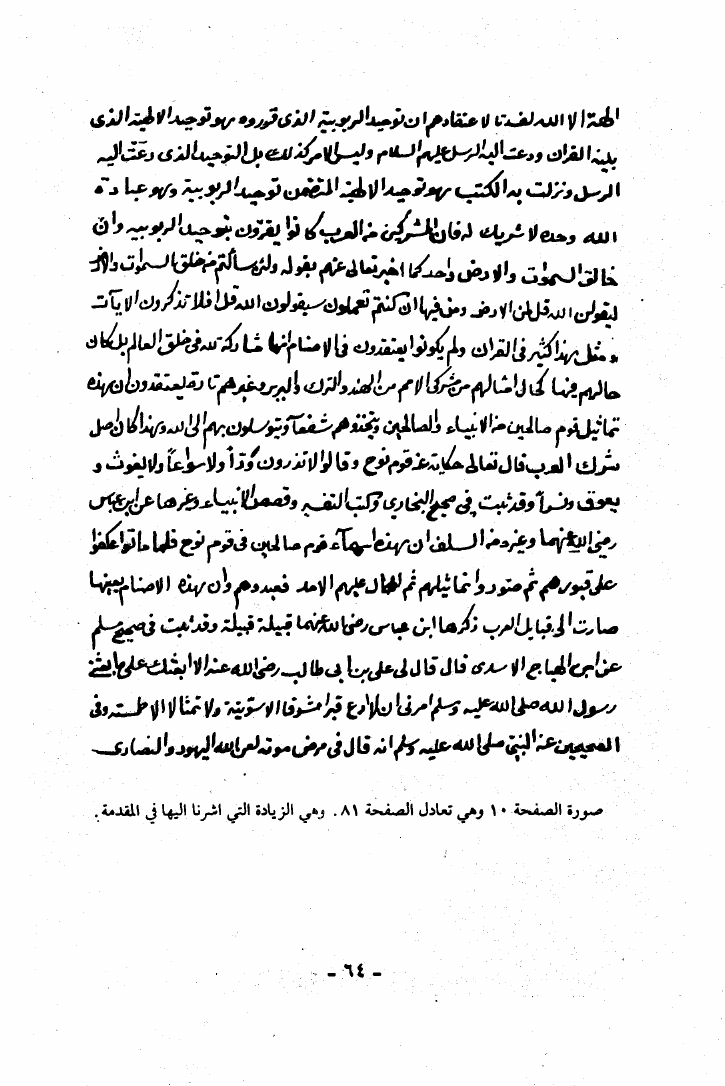 الهة الا الله لفسدتا لاعتقادهم ان توحيد الربوبية الذي قرروه هو توحيد الالهية الذي
بينه القران ودعت اليه الرسل عليهم السلام وليس الامر كذلك بل التوحيد الذي دعت اليه
الرسل ونزلت به الكتب هو توحيد الالهية المتضمن توحيد الربوبية وهو عبادة
الله وحده لا شريك له فان المشركين من العرب كانوا يقرون بتوحيد الربوبيه وان
خالق السموات والارض واحد كما اخبر تعالى عنهم بقوله ولئن سألتم من خلق السموات والارض
ليقولن الله قل لمن الارض ومن فيها ان كنتم تعملون سيقولون الله قل افلا تذكرون الايات
ومثل هذا كثير في القران ولم يكونوا يعتقدون في الاصنام انها مشاركة لله في خلق العالم بل كان
حالهم فيها كحال امثالهم من مشركي الامم من الهند والترك والبربر وغيرهم تارة يعتقدون ان هذه
تماثيل قوم صالحين من الانبياء والصالحين ويتخذوهم شفعآ ويتوسلون بهم الى الله وهذا كان اصل
شرك العرب قال تعالى حكاية عن قوم نوح وقالوا لا تذرون ودّاً ولا سواعاً ولا يغوث و
يعوق ونسراً وقد ثبت في صحيح البخاري وكتب التفسير وقصص الانبياء وغيرها عن ابن عباس
رضي الله عنهما وغيره من السلف ان هذه اسمآء قوم صالحين في قوم نوح فلما ماتوا عكفوا
على قبورهم ثم صوروا تماثيلهم ثم طال عليهم الامد فعبدوهم وان هذه الاصنام بعينها
صارت الى قبايل العرب ذكرها ابن عباس رضي الله عنهما قبيلة قبيلة وقد ثبت في صحيح مسلم
عن ابي الهياج الاسدى قال قال لي علي بن ابي طالب رضي الله عنه الا ابعثك على ما بعثني
رسول الله صلى الله عليه وسلم امرني ان لا ادع قبرا مشرفا الا سويته ولا تمثالا الا طمسته وفي
الصحيحين عن النبي صلى الله عليه وسلم انه قال في مرض موته لعن الله اليهود والنصارى
صورة الصفحة ١٠ وهي تعادل الصفحة ٨١. وهي الزيادة التي اشرنا اليها في المقدمة.
- ٦٤ -